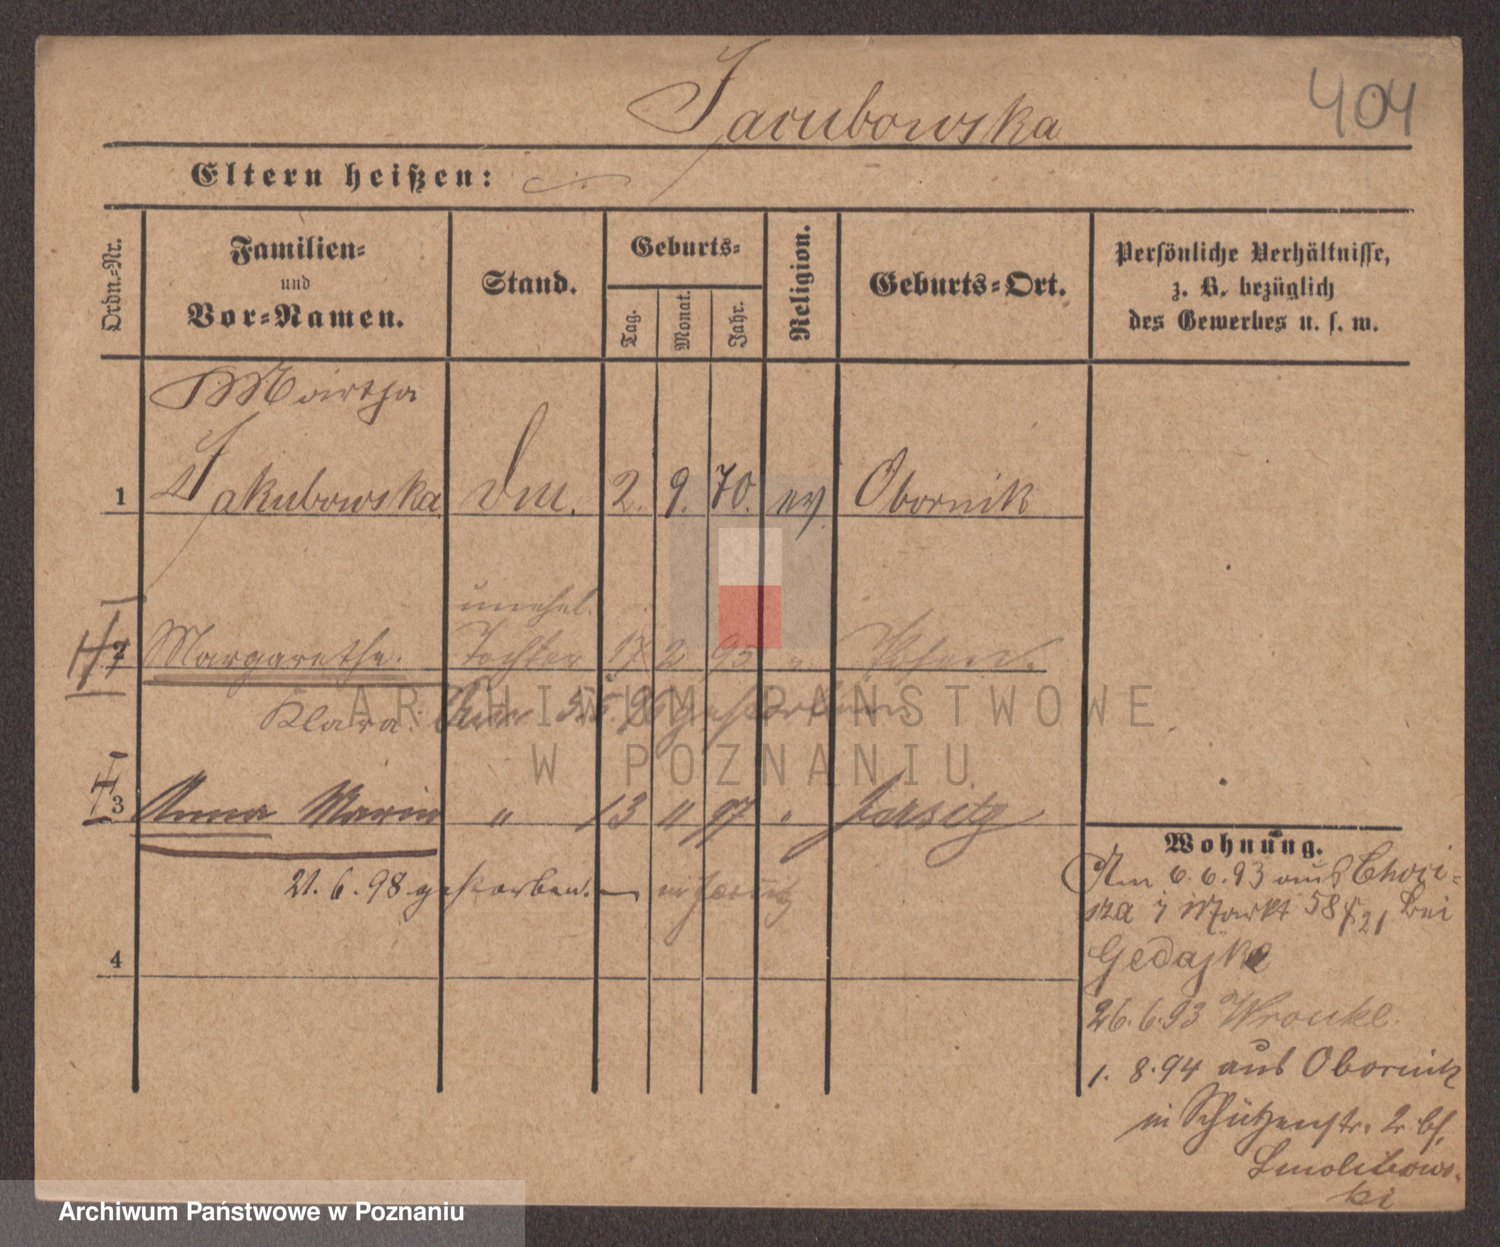 404
Jacubowska
Eltern heißen:
Ordn.-Nr.
Familien-
und
Vor-Namen.
Stand.
Geburts-
Tag.
Monat.
Jahr.
Religion.
Geburts-Ort.
Persönliche Verhältnisse,
z. B. bezüglich
des Gewerbes u. s. w.
Martha
1 Jakubowska 2. 9. 70. ev. Obornik
unehel.
2 Margarethe Tochter 17 2 93 Posen.
Klara: 96 gestorben
3 Anna Maria " 13 11 97 " Jersitz
21. 6. 98 gestorben. — in Jersitz
4
Wohnung.
Am 6.6.93 aus
Markt 58 bei
26.6.93 Wronke.
1. 8. 94 aus Obornik
in Schützenstr. 2 bei
Smolibows-
ki
ARCHIWUM PAŃSTWOWE
W POZNANIU
Archiwum Państwowe w Poznaniu